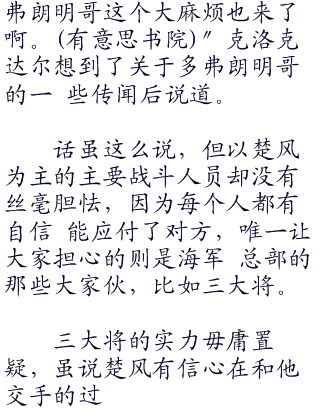 弗朗明哥这个大麻烦也来了
啊。(有意思书院)〃克洛克
达尔想到了关于多弗朗明哥
的一 些传闻后说道。
话虽这么说，但以楚风
为主的主要战斗人员却没有
丝毫胆怯，因为每个人都有
自信 能应付了对方，唯一让
大家担心的则是海军 总部的
那些大家伙，比如三大将。
三大将的实力毋庸置
疑，虽说楚风有信心在和他
交手的过